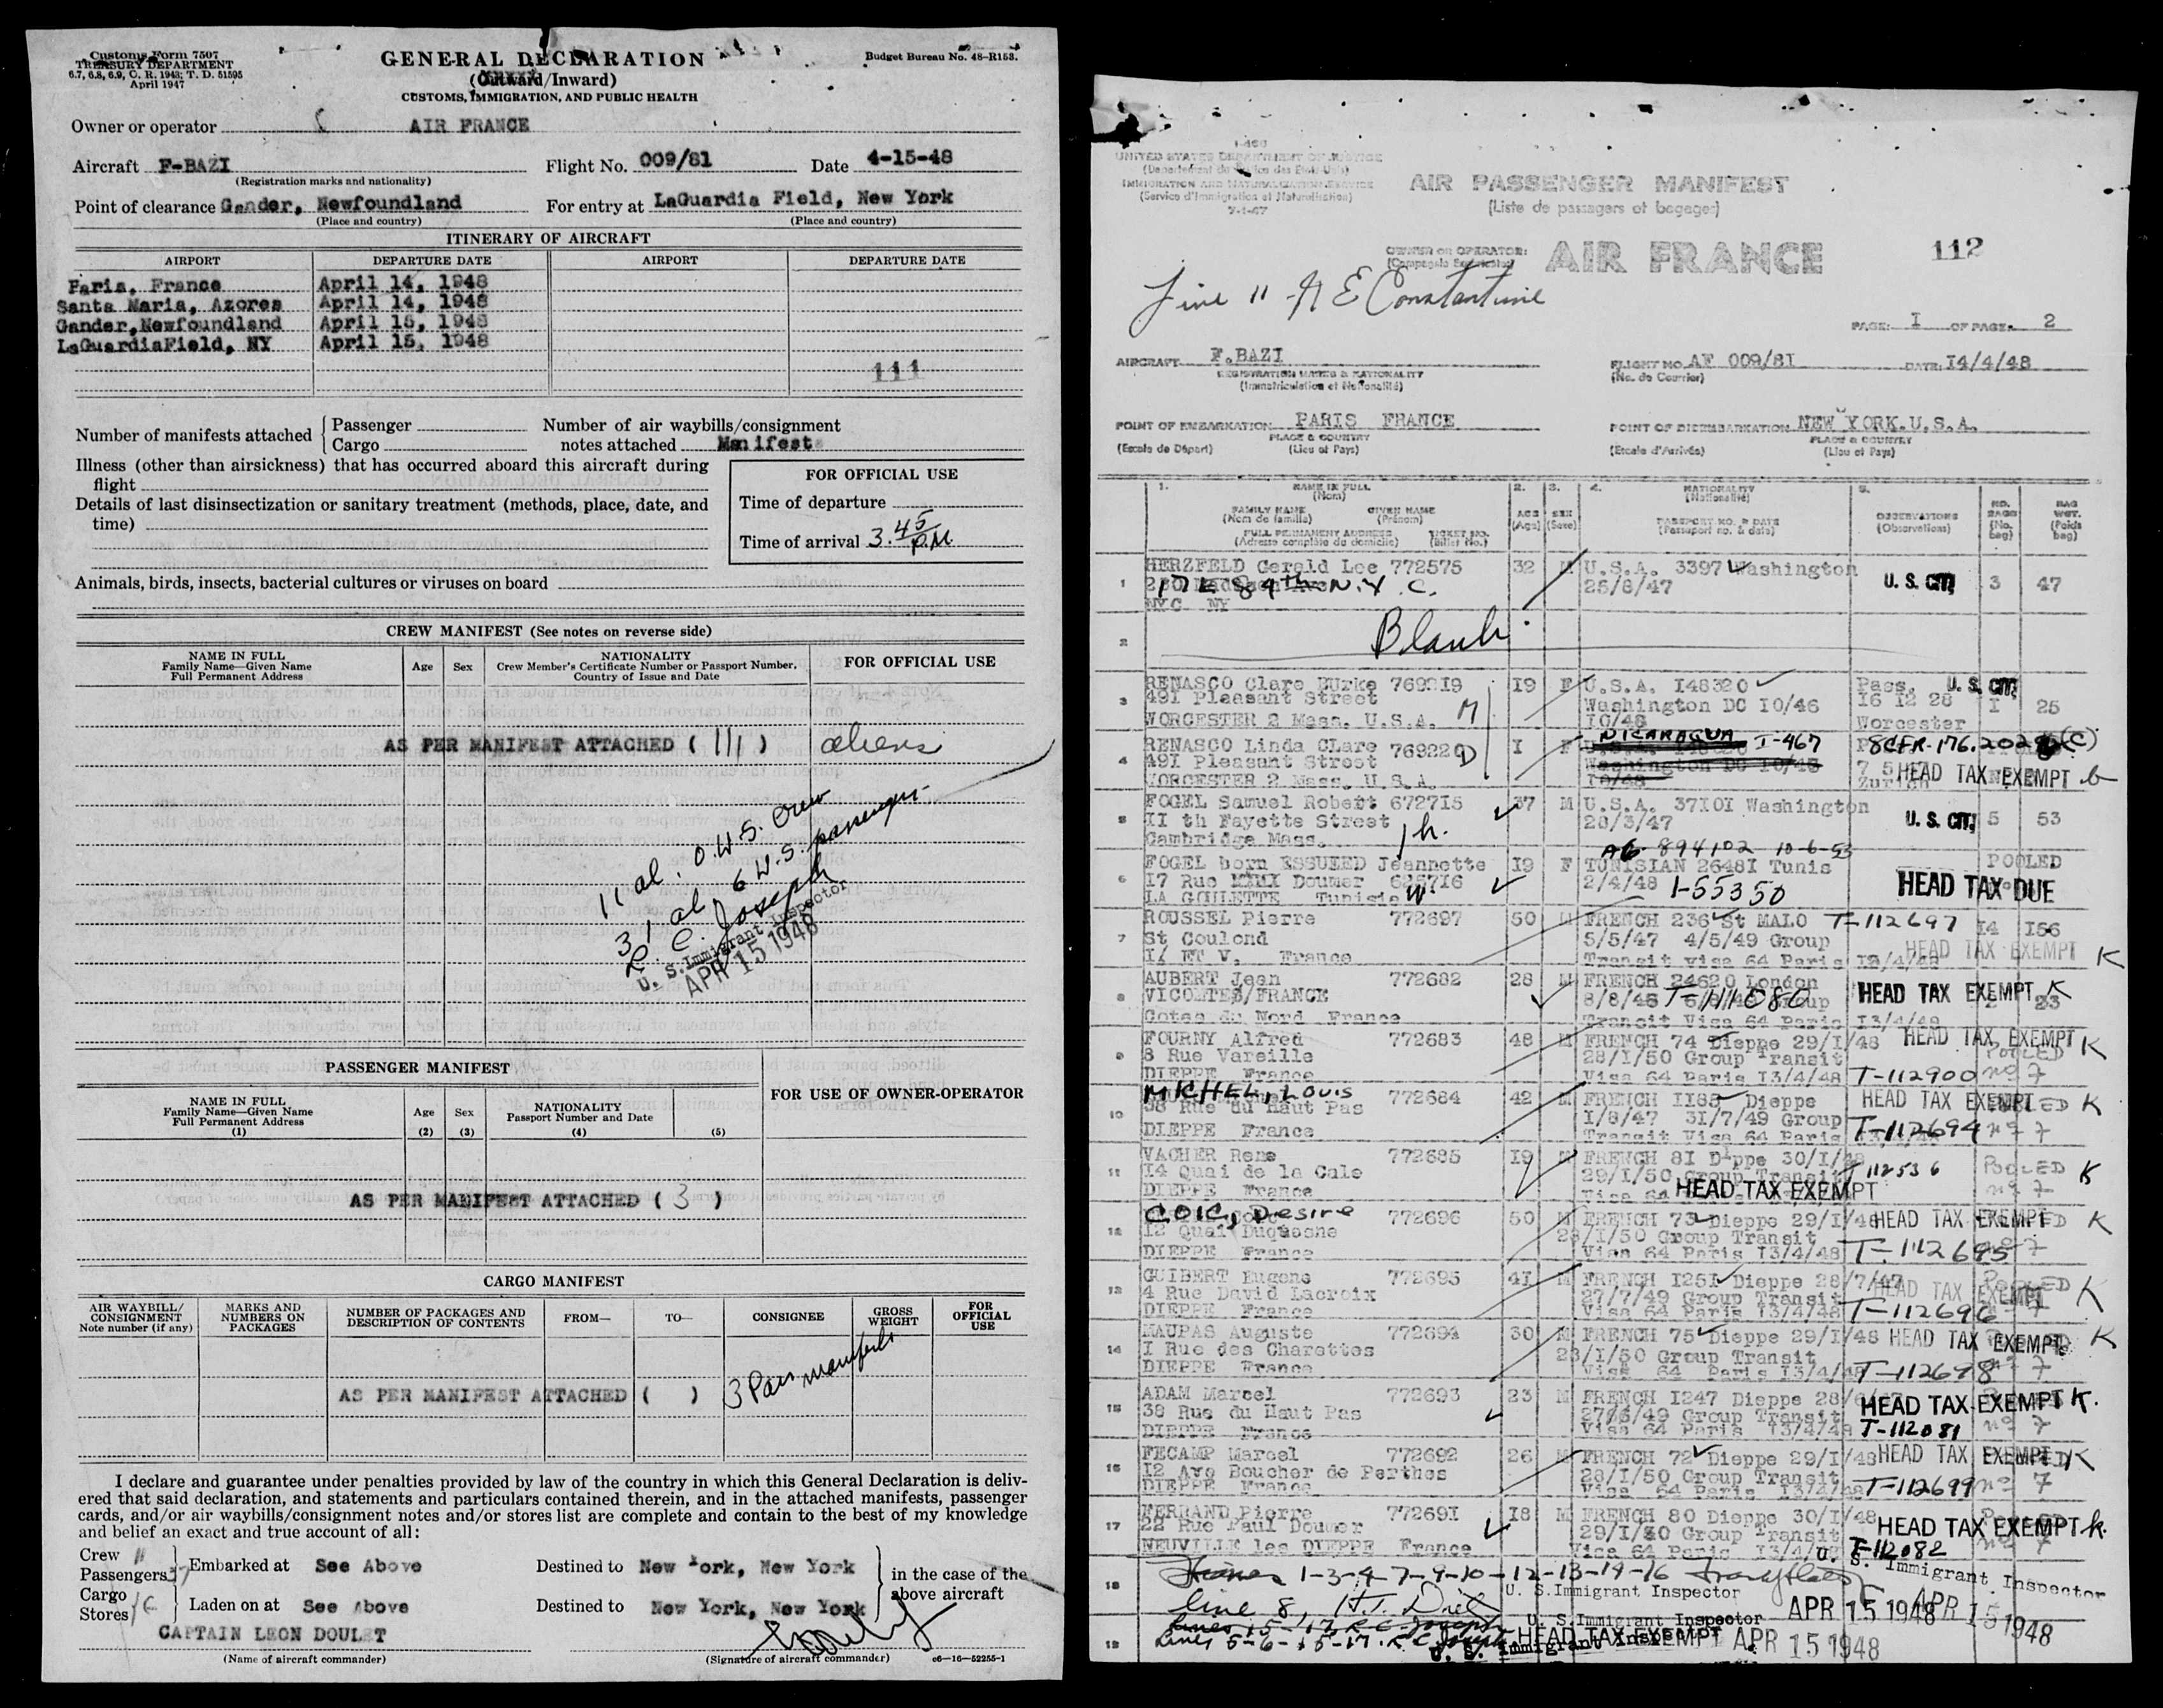 Customs Form 7507
TREASURY DEPARTMENT
6.7, 6.8, 6.9, C. R. 1943; T. D. 51595
April 1947
GENERAL DECLARATION
(Outward/Inward)
CUSTOMS, IMMIGRATION, AND PUBLIC HEALTH
Budget Bureau No. 48–R153.
Owner or operator AIR FRANCE
Aircraft F-BAZI Flight No. 009/81 Date 4-15-48
(Registration marks and nationality)
Point of clearance Gander, Newfoundland For entry at LaGuardia Field, New York
(Place and country) (Place and country)
ITINERARY OF AIRCRAFT
AIRPORT DEPARTURE DATE AIRPORT DEPARTURE DATE
Paris, France April 14, 1948
Santa Maria, Azores April 14, 1948
Gander, Newfoundland April 15, 1948
LaGuardiaField, NY April 15, 1948
111
Number of manifests attached { Passenger Number of air waybills/consignment
Cargo notes attached Manifest
Illness (other than airsickness) that has occurred aboard this aircraft during
flight
Details of last disinsectization or sanitary treatment (methods, place, date, and
time)
FOR OFFICIAL USE
Time of departure
Time of arrival 3.45 P.M
Animals, birds, insects, bacterial cultures or viruses on board
CREW MANIFEST (See notes on reverse side)
NAME IN FULL
Family Name—Given Name
Full Permanent Address
Age Sex
NATIONALITY
Crew Member's Certificate Number or Passport Number.
Country of Issue and Date
FOR OFFICIAL USE
AS PER MANIFEST ATTACHED ( 111 ) aliens
11 al. 0 U.S. Crew
31 al 6 U.S. passengers
R. C. Joseph
U. S. Immigrant Inspector
APR 15 1948
PASSENGER MANIFEST
NAME IN FULL
Family Name—Given Name
Full Permanent Address
(1)
Age
(2)
Sex
(3)
NATIONALITY
Passport Number and Date
(4)
(5)
FOR USE OF OWNER-OPERATOR
AS PER MANIFEST ATTACHED ( 3 )
CARGO MANIFEST
AIR WAYBILL/
CONSIGNMENT
Note number (if any)
MARKS AND
NUMBERS ON
PACKAGES
NUMBER OF PACKAGES AND
DESCRIPTION OF CONTENTS
FROM—
TO—
CONSIGNEE
GROSS
WEIGHT
FOR
OFFICIAL
USE
AS PER MANIFEST ATTACHED ( )
3 Pass manifests
I declare and guarantee under penalties provided by law of the country in which this General Declaration is deliv-
ered that said declaration, and statements and particulars contained therein, and in the attached manifests, passenger
cards, and/or air waybills/consignment notes and/or stores list are complete and contain to the best of my knowledge
and belief an exact and true account of all:
Crew 11
Passengers 37
Embarked at See Above Destined to New York, New York
in the case of the
above aircraft
Cargo
Stores
Laden on at See Above Destined to New York, New York
CAPTAIN LEON DOULET
(Name of aircraft commander) (Signature of aircraft commander) c6—16—52255-1
I-466
UNITED STATES DEPARTMENT OF JUSTICE
IMMIGRATION AND NATURALIZATION SERVICE
(Service d'Immigration et Naturalisation)
7-1-47
AIR PASSENGER MANIFEST
(Liste de passagers et bagages)
OWNER OR OPERATOR: AIR FRANCE
112
Line 11 - A E Constantine
PAGE: I OF PAGE. 2
AIRCRAFT F.BAZI FLIGHT NO. AF 009/8I DATE: I4/4/48
REGISTRATION MARKS & NATIONALITY
(Immatriculation et Nationalité)
(No. de Courrier)
POINT OF EMBARKATION PARIS FRANCE POINT OF DISEMBARKATION NEW YORK.U.S.A.
PLACE & COUNTRY PLACE & COUNTRY
(Escale de Départ) (Lieu et Pays) (Escale d'Arrivée) (Lieu et Pays)
1. NAME IN FULL
(Nom)
FAMILY NAME GIVEN NAME
(Nom de famille) (Prénom)
FULL PERMANENT ADDRESS TICKET NO.
(Adresse complète du domicile) (Billet No.)
2. AGE
(Age)
3. SEX
(Sexe)
4. NATIONALITY
(Nationalité)
PASSPORT NO. & DATE
(Passeport no. & date)
5. OBSERVATIONS
(Observations)
NO. BAGS
(No. bag)
BAG WGT.
(Poids bag)
1 HERZFELD Gerald Lee 772575 32 M U.S.A. 3397 Washington U. S. CIT. 3 47
17 E 84th N.Y.C. 25/6/47
NYC NY
2 Blank
3 RENASCO Clare BUrke 769219 I9 F U.S.A. I48320 Pass. U. S. CIT.
491 Pleasant Street M Washington DC I0/46 I6 I2 28 I 25
WORCESTER 2 Mass. U.S.A. I0/48 Worcester
4 RENASCO Linda CLare 769220 D I F NICARAGUA I-467 8CFR-176.202(c)
49I Pleasant Street Washington DC I0/46 HEAD TAX EXEMPT
WORCESTER 2 Mass. U.S.A. I0/48 Zurich
5 FOGEL Samuel Robert 672715 37 M U.S.A. 37I0I Washington U. S. CIT. 5 53
II th Fayette Street h. 28/3/47
Cambridge Mass.
A6-894102 10-6-53
6 FOGEL born ESSUEED Jeannette I9 F TUNISIAN 2648I Tunis POOLED
17 Rue Doumer W 2/4/48 1-55350 HEAD TAX DUE
LA GOULETTE Tunisie
7 ROUSSEL Pierre 772697 50 M FRENCH 236 St MALO T-112697 I4 I56
St Coulond 5/5/47 4/5/49 Group HEAD TAX EXEMPT K
I/ ET V. France Transit visa 64 Paris
8 AUBERT Jean 772682 28 M FRENCH 24620 London HEAD TAX EXEMPT K
VICOMTES/FRANCE 23
Cotes du Nord France Transit Visa 64 Paris I3/4/48
9 FOURNY Alfred 772683 48 M FRENCH 74 Dieppe 29/I/48 HEAD TAX EXEMPT K
8 Rue Vareille 28/I/50 Group Transit POOLED
DIEPPE France Visa 64 Paris I3/4/48 T-112900 no 7
10 MICHEL, LOUIS 772684 42 M FRENCH II85 Dieppe HEAD TAX EXEMPT K
38 Rue du Haut Pas I/8/47 3I/7/49 Group
DIEPPE France Transit Visa 64 Paris T-112694 no 7
11 VACHER Rene 772685 I9 M FRENCH 8I Dieppe 30/I/48 T 112536 POOLED K
I4 Quai de la Cale 29/I/50 Group Transit no 7
DIEPPE France Visa 64 HEAD TAX EXEMPT
12 COIC, Desire 772696 50 M FRENCH 73 Dieppe 29/I/48 HEAD TAX EXEMPT K
12 Quai Duquesne 28/I/50 Group Transit
DIEPPE France Visa 64 Paris I3/4/48 T-112695 7
13 GUIBERT Eugene 772695 4I M FRENCH I25I Dieppe 28/7/47 HEAD TAX EXEMPT K
4 Rue David Lacroix 27/7/49 Group Transit
DIEPPE France Visa 64 Paris I3/4/48 T-112696 7
14 MAUPAS Auguste 772694 30 M FRENCH 75 Dieppe 29/I/48 HEAD TAX EXEMPT K
I Rue des Charettes 28/I/50 Group Transit
DIEPPE France Visa 64 Paris I3/4/48 T-112698 7
15 ADAM Marcel 772693 23 M FRENCH I247 Dieppe HEAD TAX EXEMPT K.
38 Rue du Haut Pas 27/6/49 Group Transit no 7
DIEPPE France Visa 64 Paris I3/4/48 T-112081
16 FECAMP Marcel 772692 26 M FRENCH 72 Dieppe 29/I/48 HEAD TAX EXEMPT K
I2 Ave Boucher de Perthes 28/I/50 Group Transit
DIEPPE France Visa 64 Paris I3/4/48 T-112699 no 7
17 FERRAND Pierre 77269I I8 M FRENCH 80 Dieppe 30/I/48 HEAD TAX EXEMPT k.
22 Rue Paul Doumer 29/I/50 Group Transit
NEUVILLE les DIEPPE France Visa 64 Paris T-112082 no 7
18 Lines 1-3-4-7-9-10-12-13-14-16
U. S. Immigrant Inspector
U. S. Immigrant Inspector
line 8, H.T.
APR 15 1948 APR 15 1948
U. S. Immigrant Inspector
19 Lines 5-6-15-17. R C Joseph HEAD TAX EXEMPT APR 15 1948
U. S. Immigrant Inspector